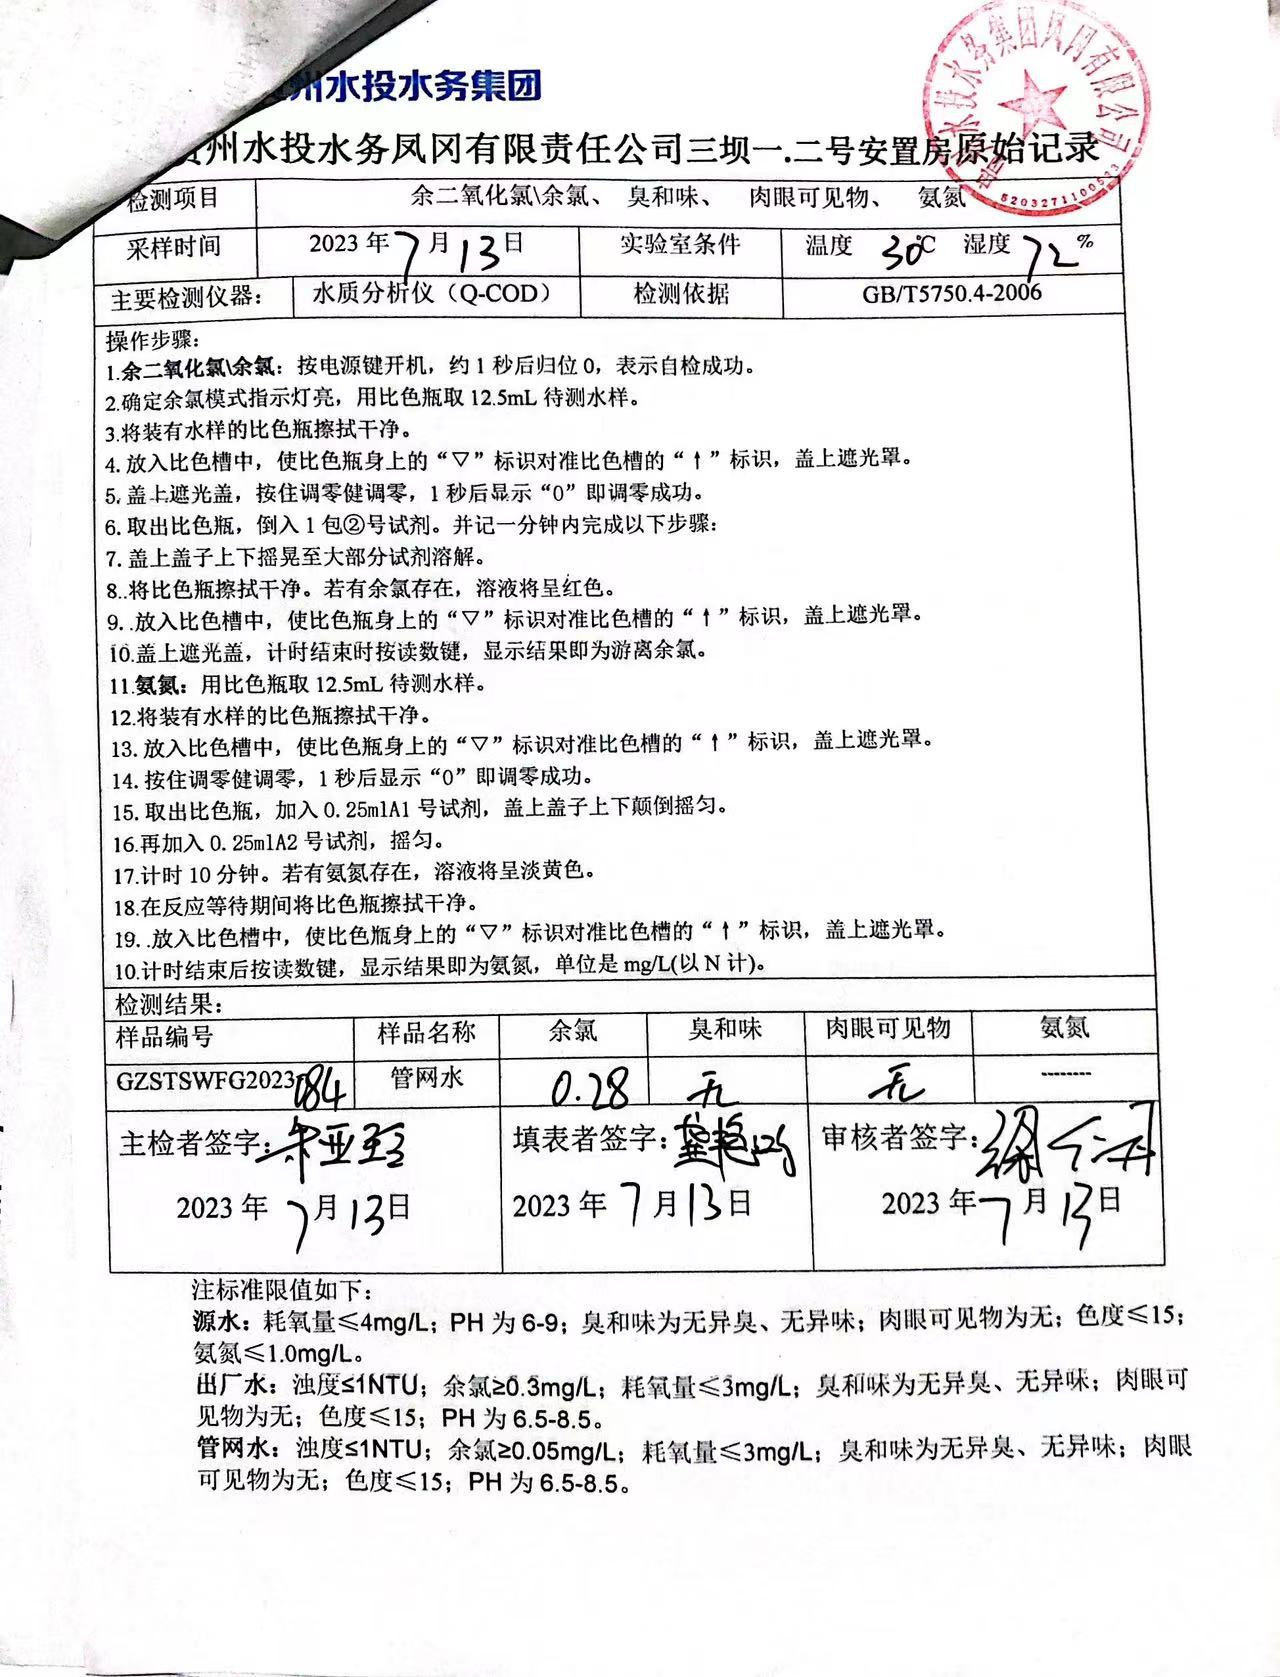 州水投水务集团
贵州水投水务凤冈有限责任公司三坝一.二号安置房原始记录
水投水务集团凤冈有限公司
5203271100533
检测项目 余二氧化氯\余氯、 臭和味、 肉眼可见物、 氨氮
采样时间 2023年7月13日 实验室条件 温度 30℃ 湿度 72%
主要检测仪器: 水质分析仪（Q-COD） 检测依据 GB/T5750.4-2006
操作步骤:
1.余二氧化氯\余氯：按电源键开机，约1秒后归位0，表示自检成功。
2.确定余氯模式指示灯亮，用比色瓶取12.5mL待测水样。
3.将装有水样的比色瓶擦拭干净。
4.放入比色槽中，使比色瓶身上的“▽”标识对准比色槽的“↑”标识，盖上遮光罩。
5.盖上遮光盖，按住调零健调零，1秒后显示“0”即调零成功。
6.取出比色瓶，倒入1包②号试剂。并记一分钟内完成以下步骤:
7.盖上盖子上下摇晃至大部分试剂溶解。
8..将比色瓶擦拭干净。若有余氯存在，溶液将呈红色。
9..放入比色槽中，使比色瓶身上的“▽”标识对准比色槽的“↑”标识，盖上遮光罩。
10.盖上遮光盖，计时结束时按读数键，显示结果即为游离余氯。
11.氨氮：用比色瓶取12.5mL待测水样。
12.将装有水样的比色瓶擦拭干净。
13.放入比色槽中，使比色瓶身上的“▽”标识对准比色槽的“↑”标识，盖上遮光罩。
14.按住调零健调零，1秒后显示“0”即调零成功。
15.取出比色瓶，加入0.25mlA1号试剂，盖上盖子上下颠倒摇匀。
16.再加入0.25mlA2号试剂，摇匀。
17.计时10分钟。若有氨氮存在，溶液将呈淡黄色。
18.在反应等待期间将比色瓶擦拭干净。
19..放入比色槽中，使比色瓶身上的“▽”标识对准比色槽的“↑”标识，盖上遮光罩。
10.计时结束后按读数键，显示结果即为氨氮，单位是mg/L(以N计)。
检测结果:
样品编号 样品名称 余氯 臭和味 肉眼可见物 氨氮
GZSTSWFG2023-184 管网水 0.28 无 无 --------
主检者签字: 填表者签字: 审核者签字:
2023年7月13日 2023年7月13日 2023年7月13日
注标准限值如下:
源水：耗氧量≤4mg/L；PH为6-9；臭和味为无异臭、无异味；肉眼可见物为无；色度≤15；
氨氮≤1.0mg/L。
出厂水：浊度≤1NTU；余氯≥0.3mg/L；耗氧量≤3mg/L；臭和味为无异臭、无异味；肉眼可
见物为无；色度≤15；PH为6.5-8.5。
管网水：浊度≤1NTU；余氯≥0.05mg/L；耗氧量≤3mg/L；臭和味为无异臭、无异味；肉眼
可见物为无；色度≤15；PH为6.5-8.5。